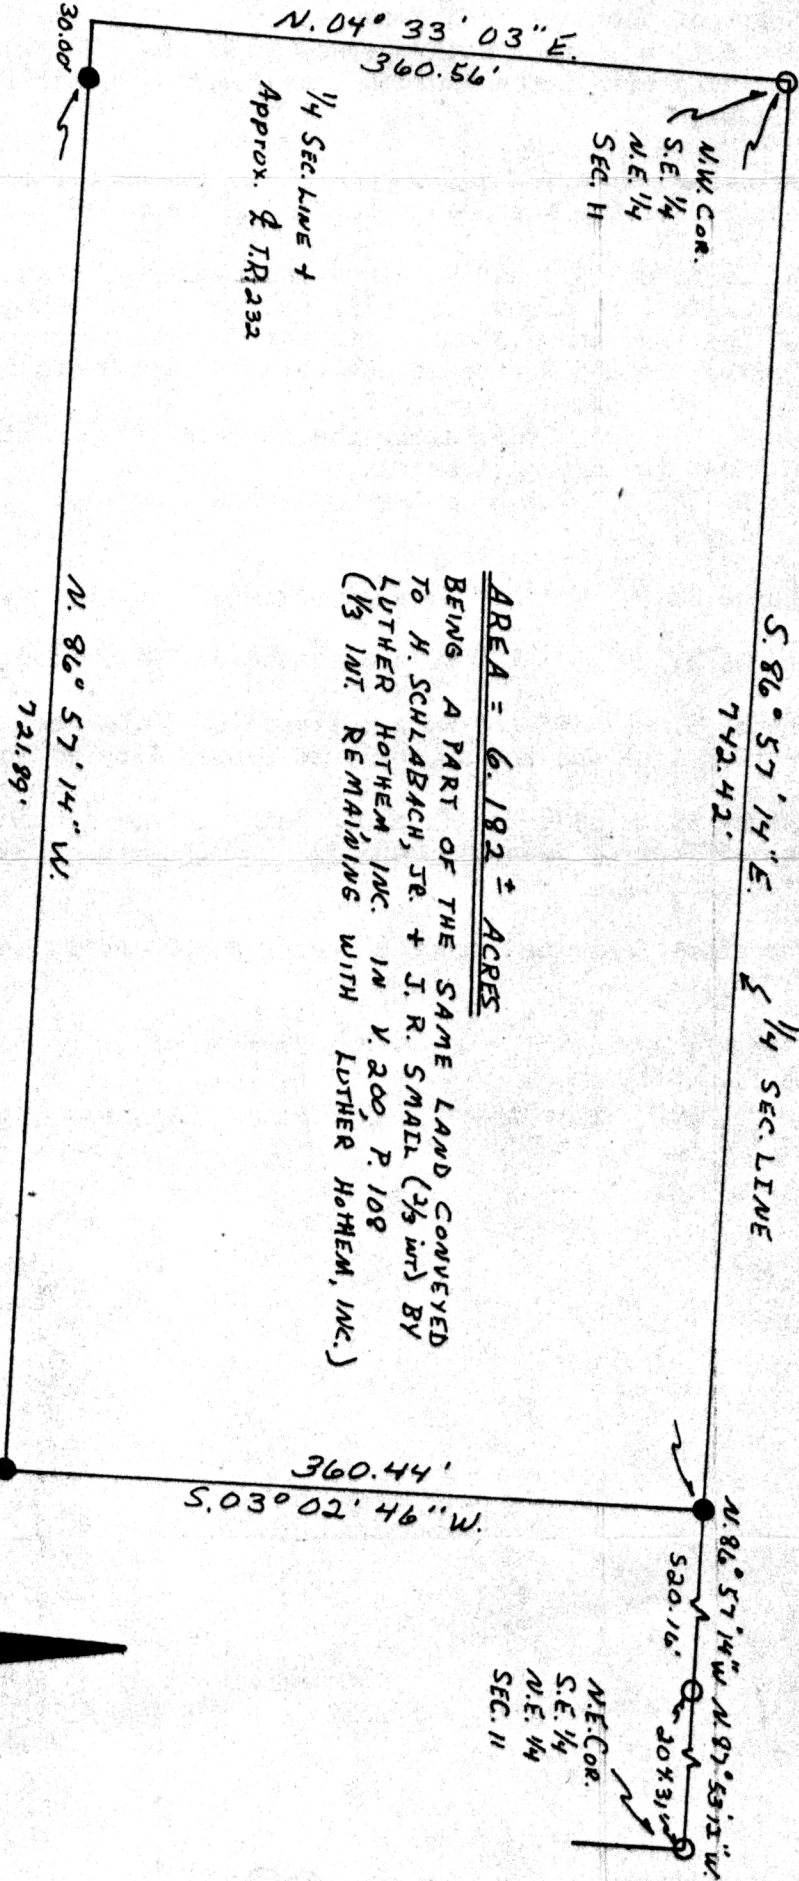 N. 04° 33' 03" E.
360.56'
30.00'
N.W. COR.
S.E. 1/4
N.E. 1/4
SEC. 11
1/4 SEC. LINE +
Approx. ℄ T.R. 232
S. 86° 57' 14" E.
742.42'
1/4 SEC. LINE
AREA = 6.182 ± ACRES
BEING A PART OF THE SAME LAND CONVEYED
TO H. SCHLABACH, JR. + J. R. SMAIL (2/3 INT) BY
LUTHER HOTHEM, INC. IN V. 200, P. 108
(1/3 INT. REMAINING WITH LUTHER HOTHEM, INC.)
N. 86° 57' 14" W.
721.89'
360.44'
S. 03° 02' 46" W.
N. 86° 57' 14" W.
520.16'
N. 87°
N.E. COR.
S.E. 1/4
N.E. 1/4
SEC. 11